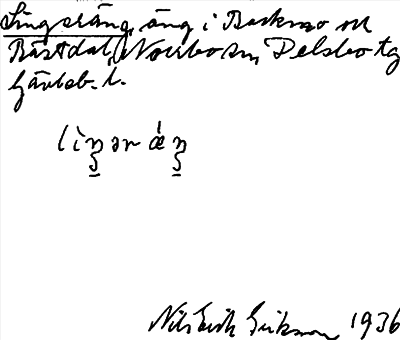 Lingeräng, äng i Backmo och
Råstdal, Norrbo sn, Delsbo tg
Gävleb. l.
lìŋər ǽŋ
Nils Erik Eriksson 1936